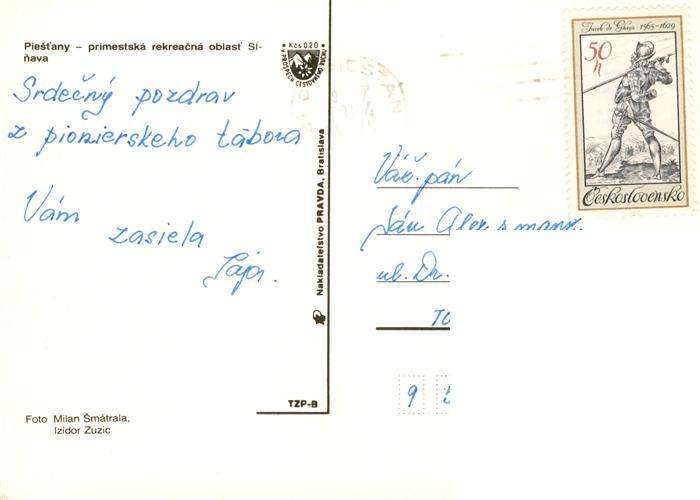 Piešťany – primestská rekreačná oblasť Sĺ-
ňava
Srdečný pozdrav
z pionierskeho tábora
Vám
zasiela
Foto Milan Šmátrala,
Izidor Zuzic
Kčs 0,20
PROSPECH CESTOVNÉHO RUCHU
Nakladateľstvo PRAVDA, Bratislava
TZP-B
Jacob de Gheyn 1565-1629
50 h
Československo
Váž. pán
Ján
s manž.
ul. Dr.
9